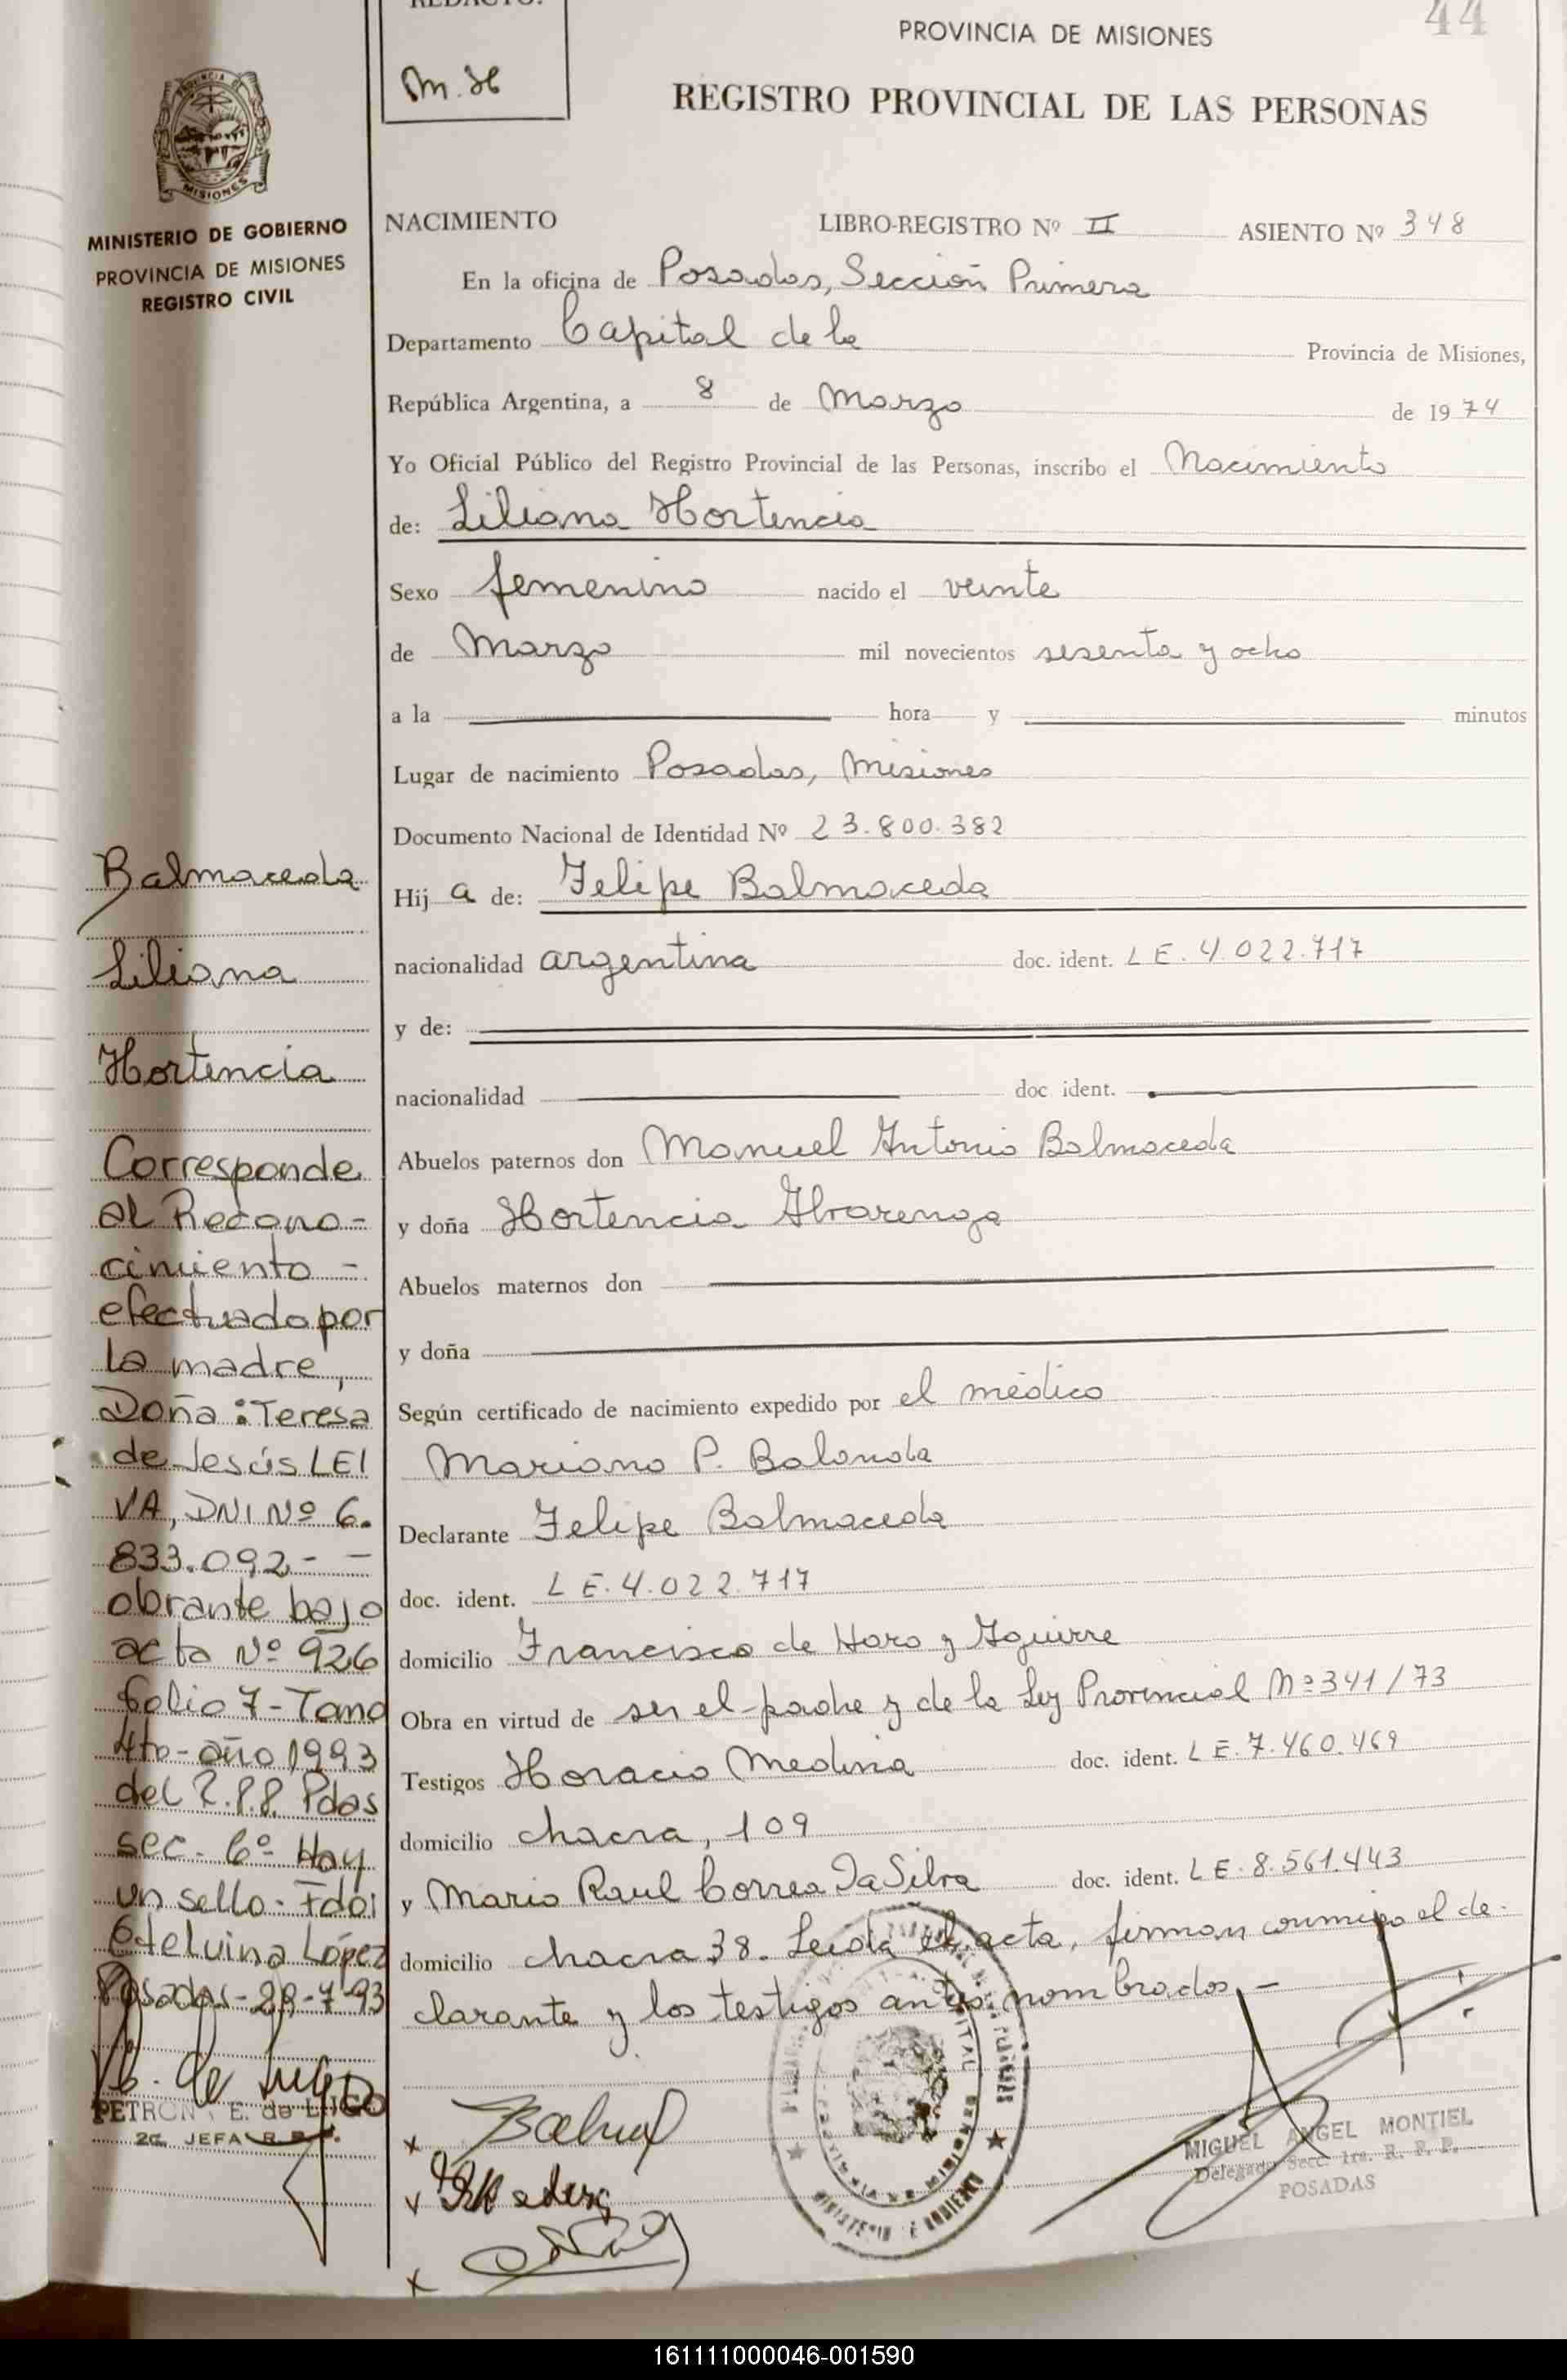 REDACTO:
M. H
44
PROVINCIA DE MISIONES
REGISTRO PROVINCIAL DE LAS PERSONAS
MISIONES
MINISTERIO DE GOBIERNO
PROVINCIA DE MISIONES
REGISTRO CIVIL
NACIMIENTO LIBRO-REGISTRO Nº II ASIENTO Nº 348
En la oficina de Posadas, Sección Primera
Departamento Capital de la Provincia de Misiones,
República Argentina, a 8 de Marzo de 1974
Yo Oficial Público del Registro Provincial de las Personas, inscribo el Nacimiento
de: Liliana Hortencia
Sexo femenino nacido el veinte
de Marzo mil novecientos sesenta y ocho
a la hora y minutos
Lugar de nacimiento Posadas, Misiones
Documento Nacional de Identidad Nº 23.800.382
Hij a de: Felipe Balmaceda
nacionalidad argentina doc. ident. L E. 4.022.717
y de:
nacionalidad doc ident.
Abuelos paternos don Manuel Antonio Balmaceda
y doña Hortencia Alvarenga
Abuelos maternos don
y doña
Según certificado de nacimiento expedido por el médico
Mariano P. Balanda
Declarante Felipe Balmaceda
doc. ident. L E. 4.022.717
domicilio Francisco de Haro y Aguirre
Obra en virtud de ser el padre y de la Ley Provincial Nº 341/73
Testigos Horacio Medina doc. ident. L E. 7.460.469
domicilio chacra, 109
y Mario Raul Correa DaSilva doc. ident. L E. 8.561.443
domicilio chacra 38. Leida el acta, firman conmigo el de-
clarante y los testigos antes nombrados.-
Balmaceda
Liliana
Hortencia
Corresponde
al Recono-
cimiento -
efectuado por
la madre,
Doña: Teresa
de Jesús LEI
VA, DNI Nº 6.
833.092 - -
obrante bajo
acta Nº 926
folio 7 - Tomo
4to - año 1993
del R.P.P. Pdas
sec. 6º Hay
un sello - Fdo:
Edelvina López
Posadas - 29-7-93
PETRONA E. de LUGO
2a. JEFA R. P. P.
MIGUEL ANGEL MONTIEL
Delegado Secc. 1ra. R. P. P.
POSADAS
161111000046-001590